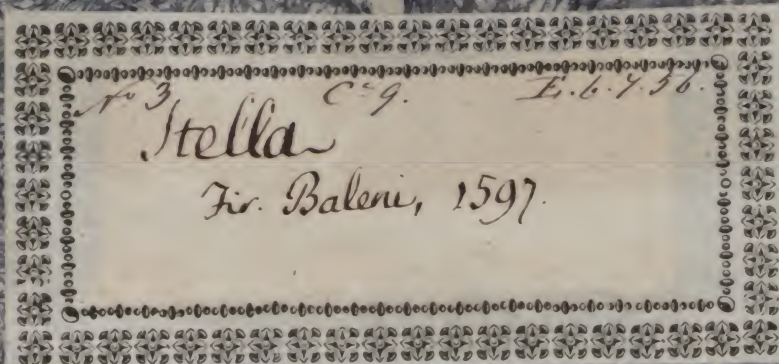 No 3 Ca 9. E.6.7.56.
Stella
Fir. Baleni, 1597.